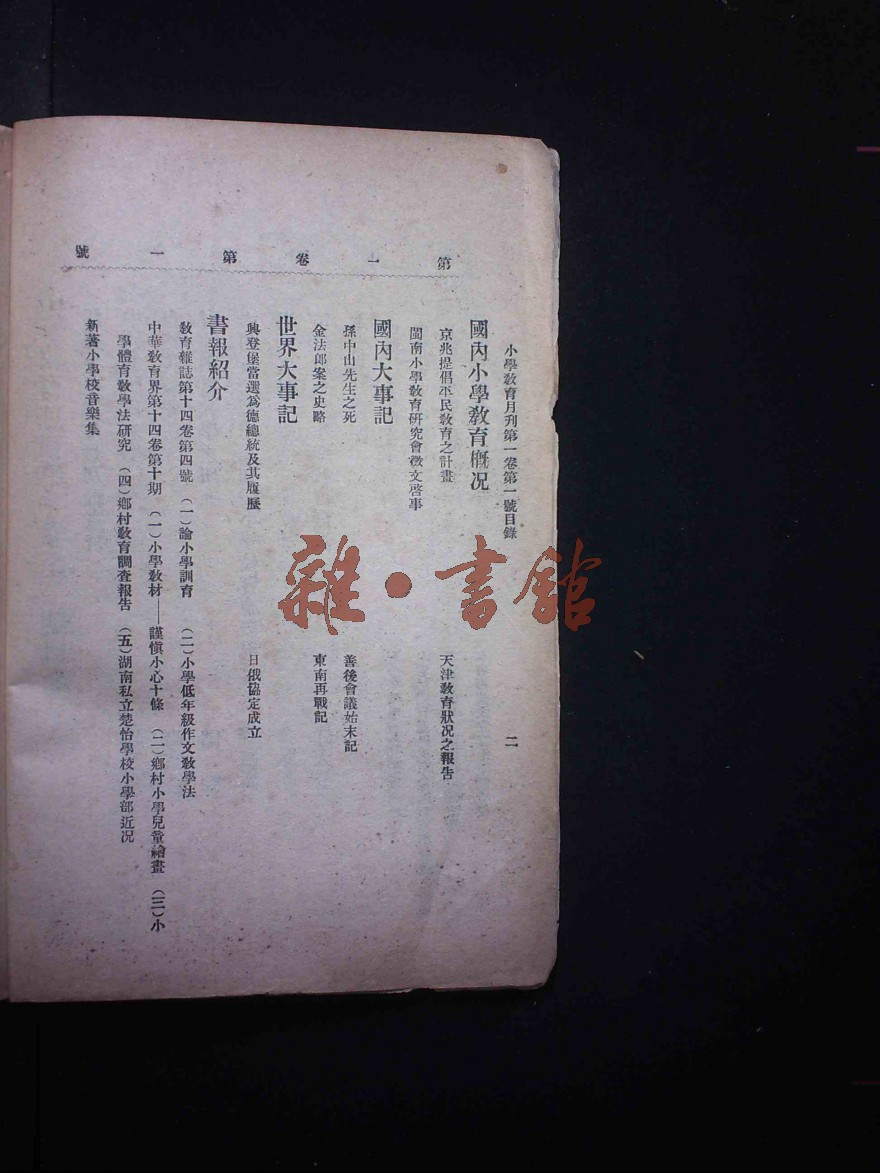 第一卷第一號
小學教育月刊第一卷第一號目錄 二
國內小學教育概况
京兆提倡平民教育之計畫 天津教育狀况之報告
閩南小學教育研究會徵文啓事
國內大事記
孫中山先生之死 善後會議始末記
金法郎案之史略 東南再戰記
世界大事記
興登堡當選為德總統及其履歷 日俄協定成立
書報紹介
教育雜誌第十四卷第四號 (一)論小學訓育 (二)小學低年級作文教學法
中華教育界第十四卷第十期 (一)小學教材——謹慎小心十條 (二)鄉村小學兒童繪畫 (三)小
學體育教學法研究 (四)鄉村教育調查報告 (五)湖南私立楚怡學校小學部近况
新著小學校音樂集
雜·書館